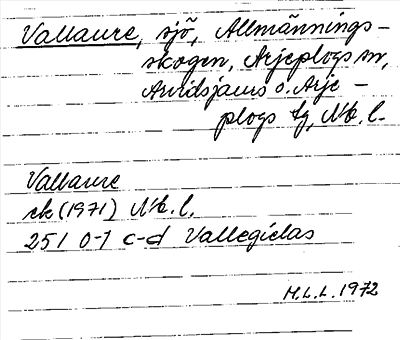 Vallaure, sjö, Allmännings-
skogen, Arjeplogs sn,
Arvidsjaurs o. Arje-
plogs tg, Nb. l.
Vallaure
ek (1971) Nb. l.
25 I 0-1 c-d Vallegielas
M.L.L. 1972